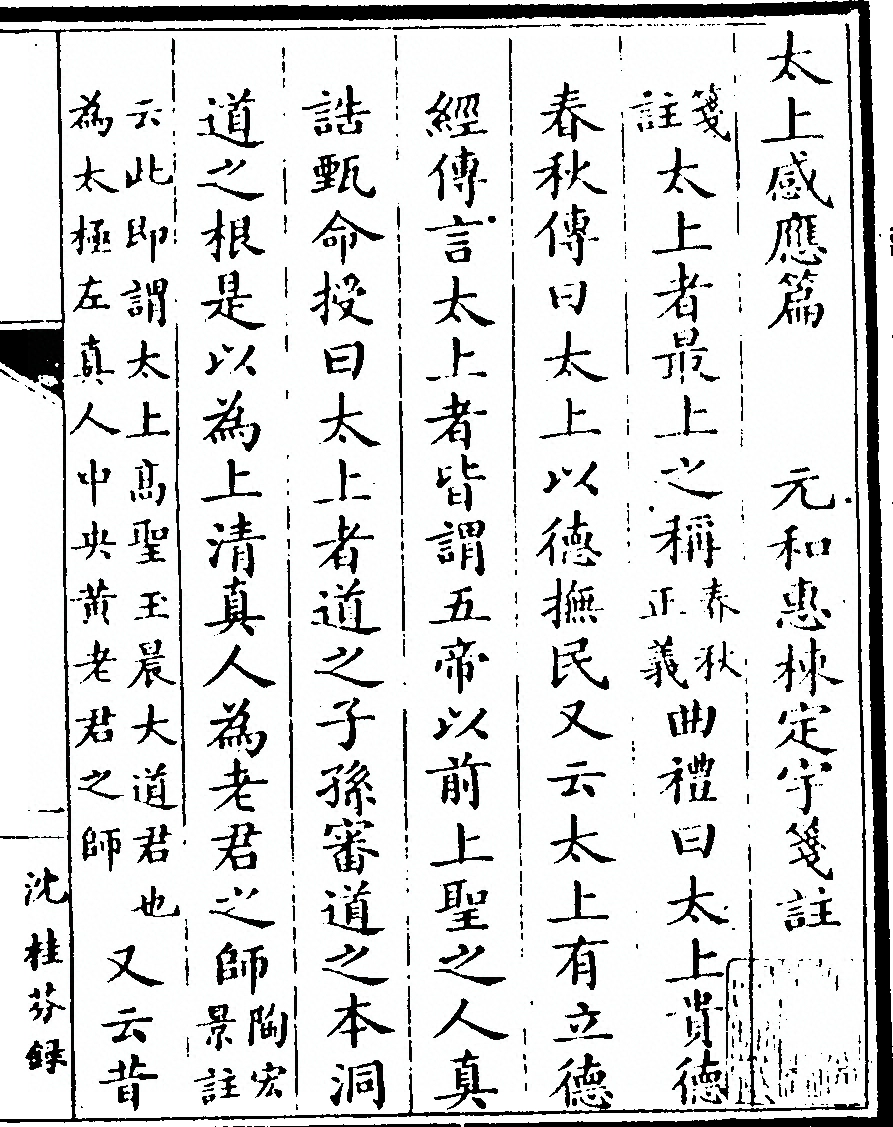 太上感應篇　元和惠棟定宇箋註
箋註太上者最上之稱春秋正義曲禮曰太上貴德
春秋傳曰太上以德撫民又云太上有立德
經傳言太上者皆謂五帝以前上聖之人真
誥甄命授曰太上者道之子孫審道之本洞
道之根是以為上清真人為老君之師陶宏景註
云此即謂太上高聖玉晨大道君也為太極左真人中央黃老君之師又云昔
沈桂芬録